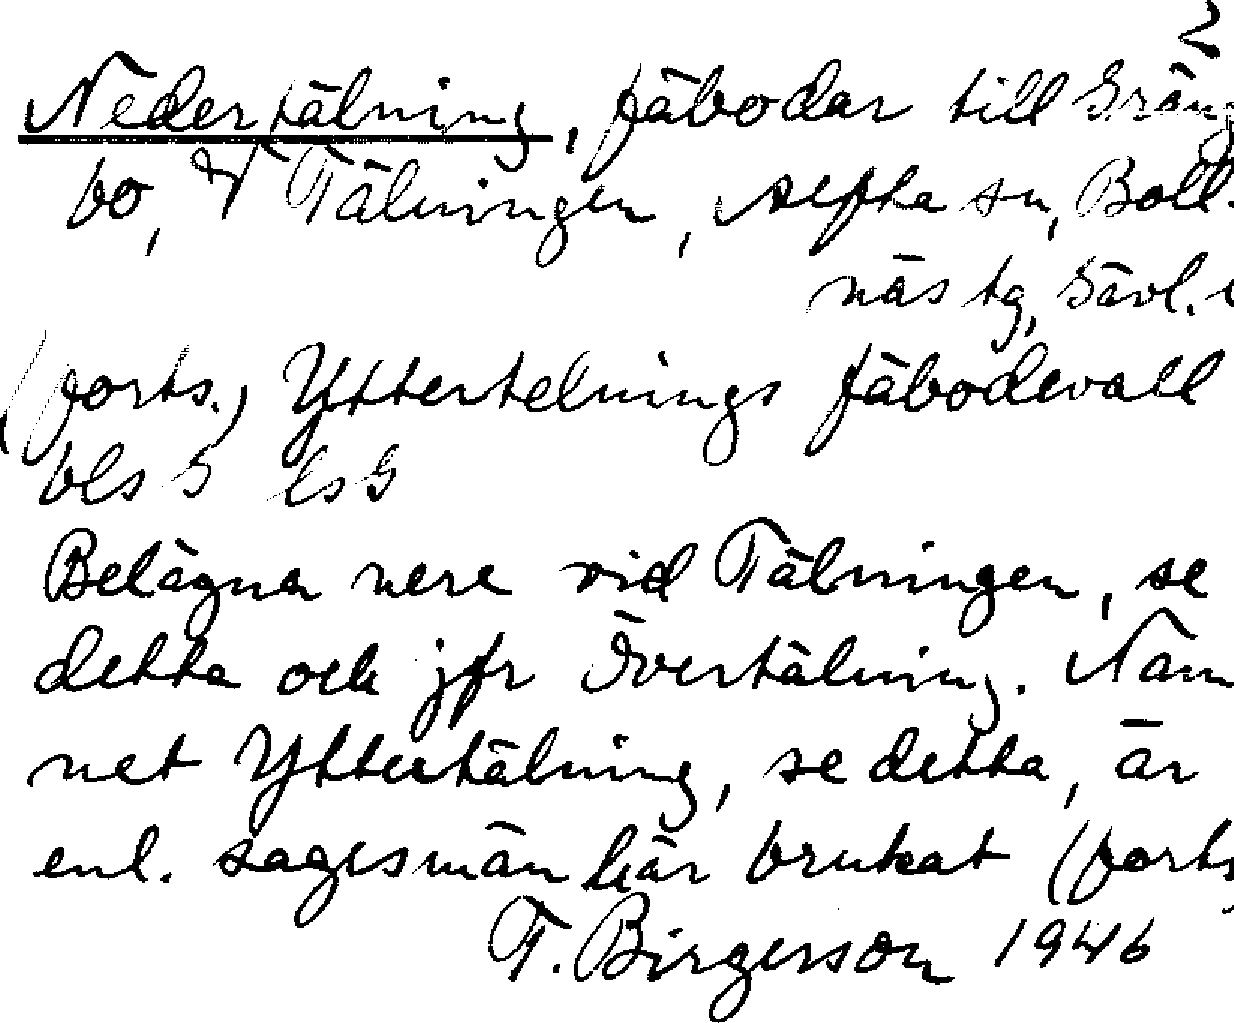 2
Nedertälning, fäbodar till Gräng
bo, V Tälningen, Alfta sn, Boll-
näs tg, Gävl.
(forts.) Yttertelnings fäbodevall
bls 5 LsG
Belägna nere vid Tälningen, se
detta och jfr Övertälning. Nam
net Yttertälning, se detta, är
enl. sagesmän här brukat (forts
T. Birgerson 1946